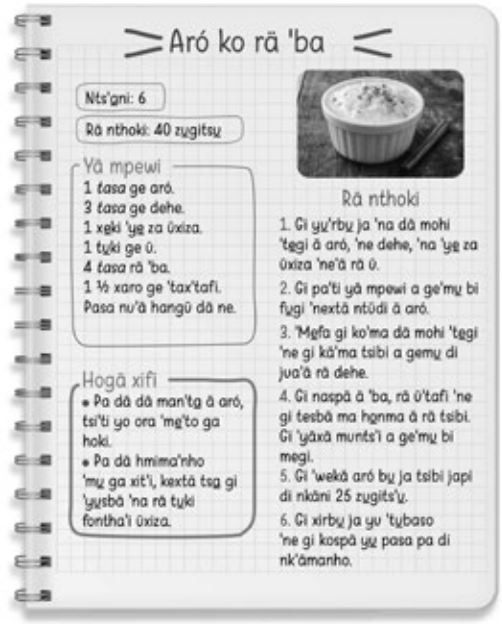 Aró ko rä 'ba
Nts'gni: 6
Rä nthoki: 40 zu̲gitsu̲
Yä mpewi
1 tasa ge aró.
3 tasa ge dehe.
1 xe̲ki 'ye̲ za üxiza.
1 tu̲ki ge ü.
4 tasa rä 'ba.
1 ½ xaro ge 'tax'tafi.
Pasa nu'ä hangü dä ne.
Hogä xifi
• Pa dä dä man'to̲ ä aró,
tsi'ti yo ora 'me̲'to ga
hoki.
• Pa dä hmima'nho
'mu̲ ga xit'i, kextä tso̲ gi
'yu̲sbä 'na rä tu̲ki
fontha'i üxiza.
Rä nthoki
1. Gi yu̲'rbu̲ ja 'na dä mohi
'te̲gi ä aró, 'ne dehe, 'na 'ye̲ za
üxiza 'ne'ä rä ü.
2. Gi pa'ti yä mpewi a ge'mu̲ bi
fu̲gi 'nextä ntüdi ä aró.
3. 'Me̲fa gi ko'ma dä mohi 'te̲gi
'ne gi kä'ma tsibi a gemu̲ di
jua'ä rä dehe.
4. Gi naspä ä 'ba, rä ü'tafi 'ne
gi tesbä ma ho̲nma ä rä tsibi.
Gi 'yäxä munts'i a ge'mu̲ bi
megi.
5. Gi 'wekä aró bu̲ ja tsibi japi
di nkäni 25 zu̲gits'u̲.
6. Gi xirbu̲ ja yu̲ 'tu̲baso
'ne gi kospä yu̲ pasa pa di
nk'ämanho.